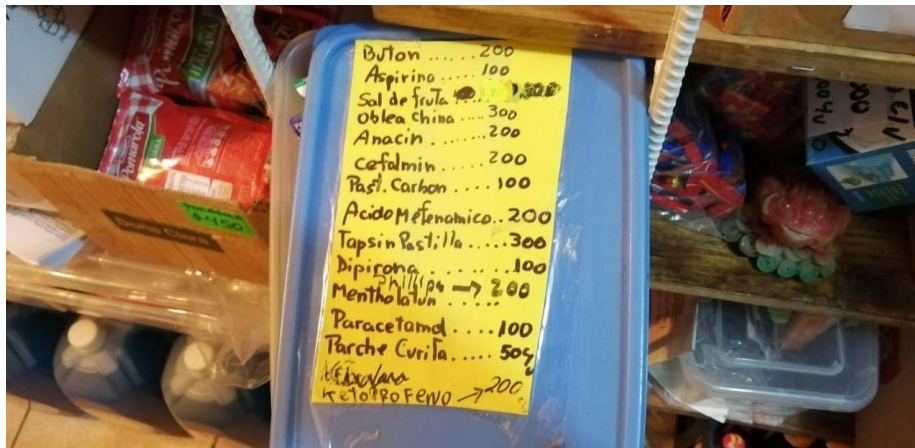 Pomarola
ITALIANA
Pomarola
Buton ...... 200
Aspirina ..... 100
Sal de fruta
oblea china .... 300
Anacin ...... 200
Cefalmin ..... 200
Past. Carbon .... 100
Acido Mefenamico.. 200
Tapsin Pastilla ..... 300
Dipirona ...... 100
Phillips → 200
Mentholatun ......
Paracetamol .... 100
Parche Curita ..... 50
KetoPROFENO → 200
$450